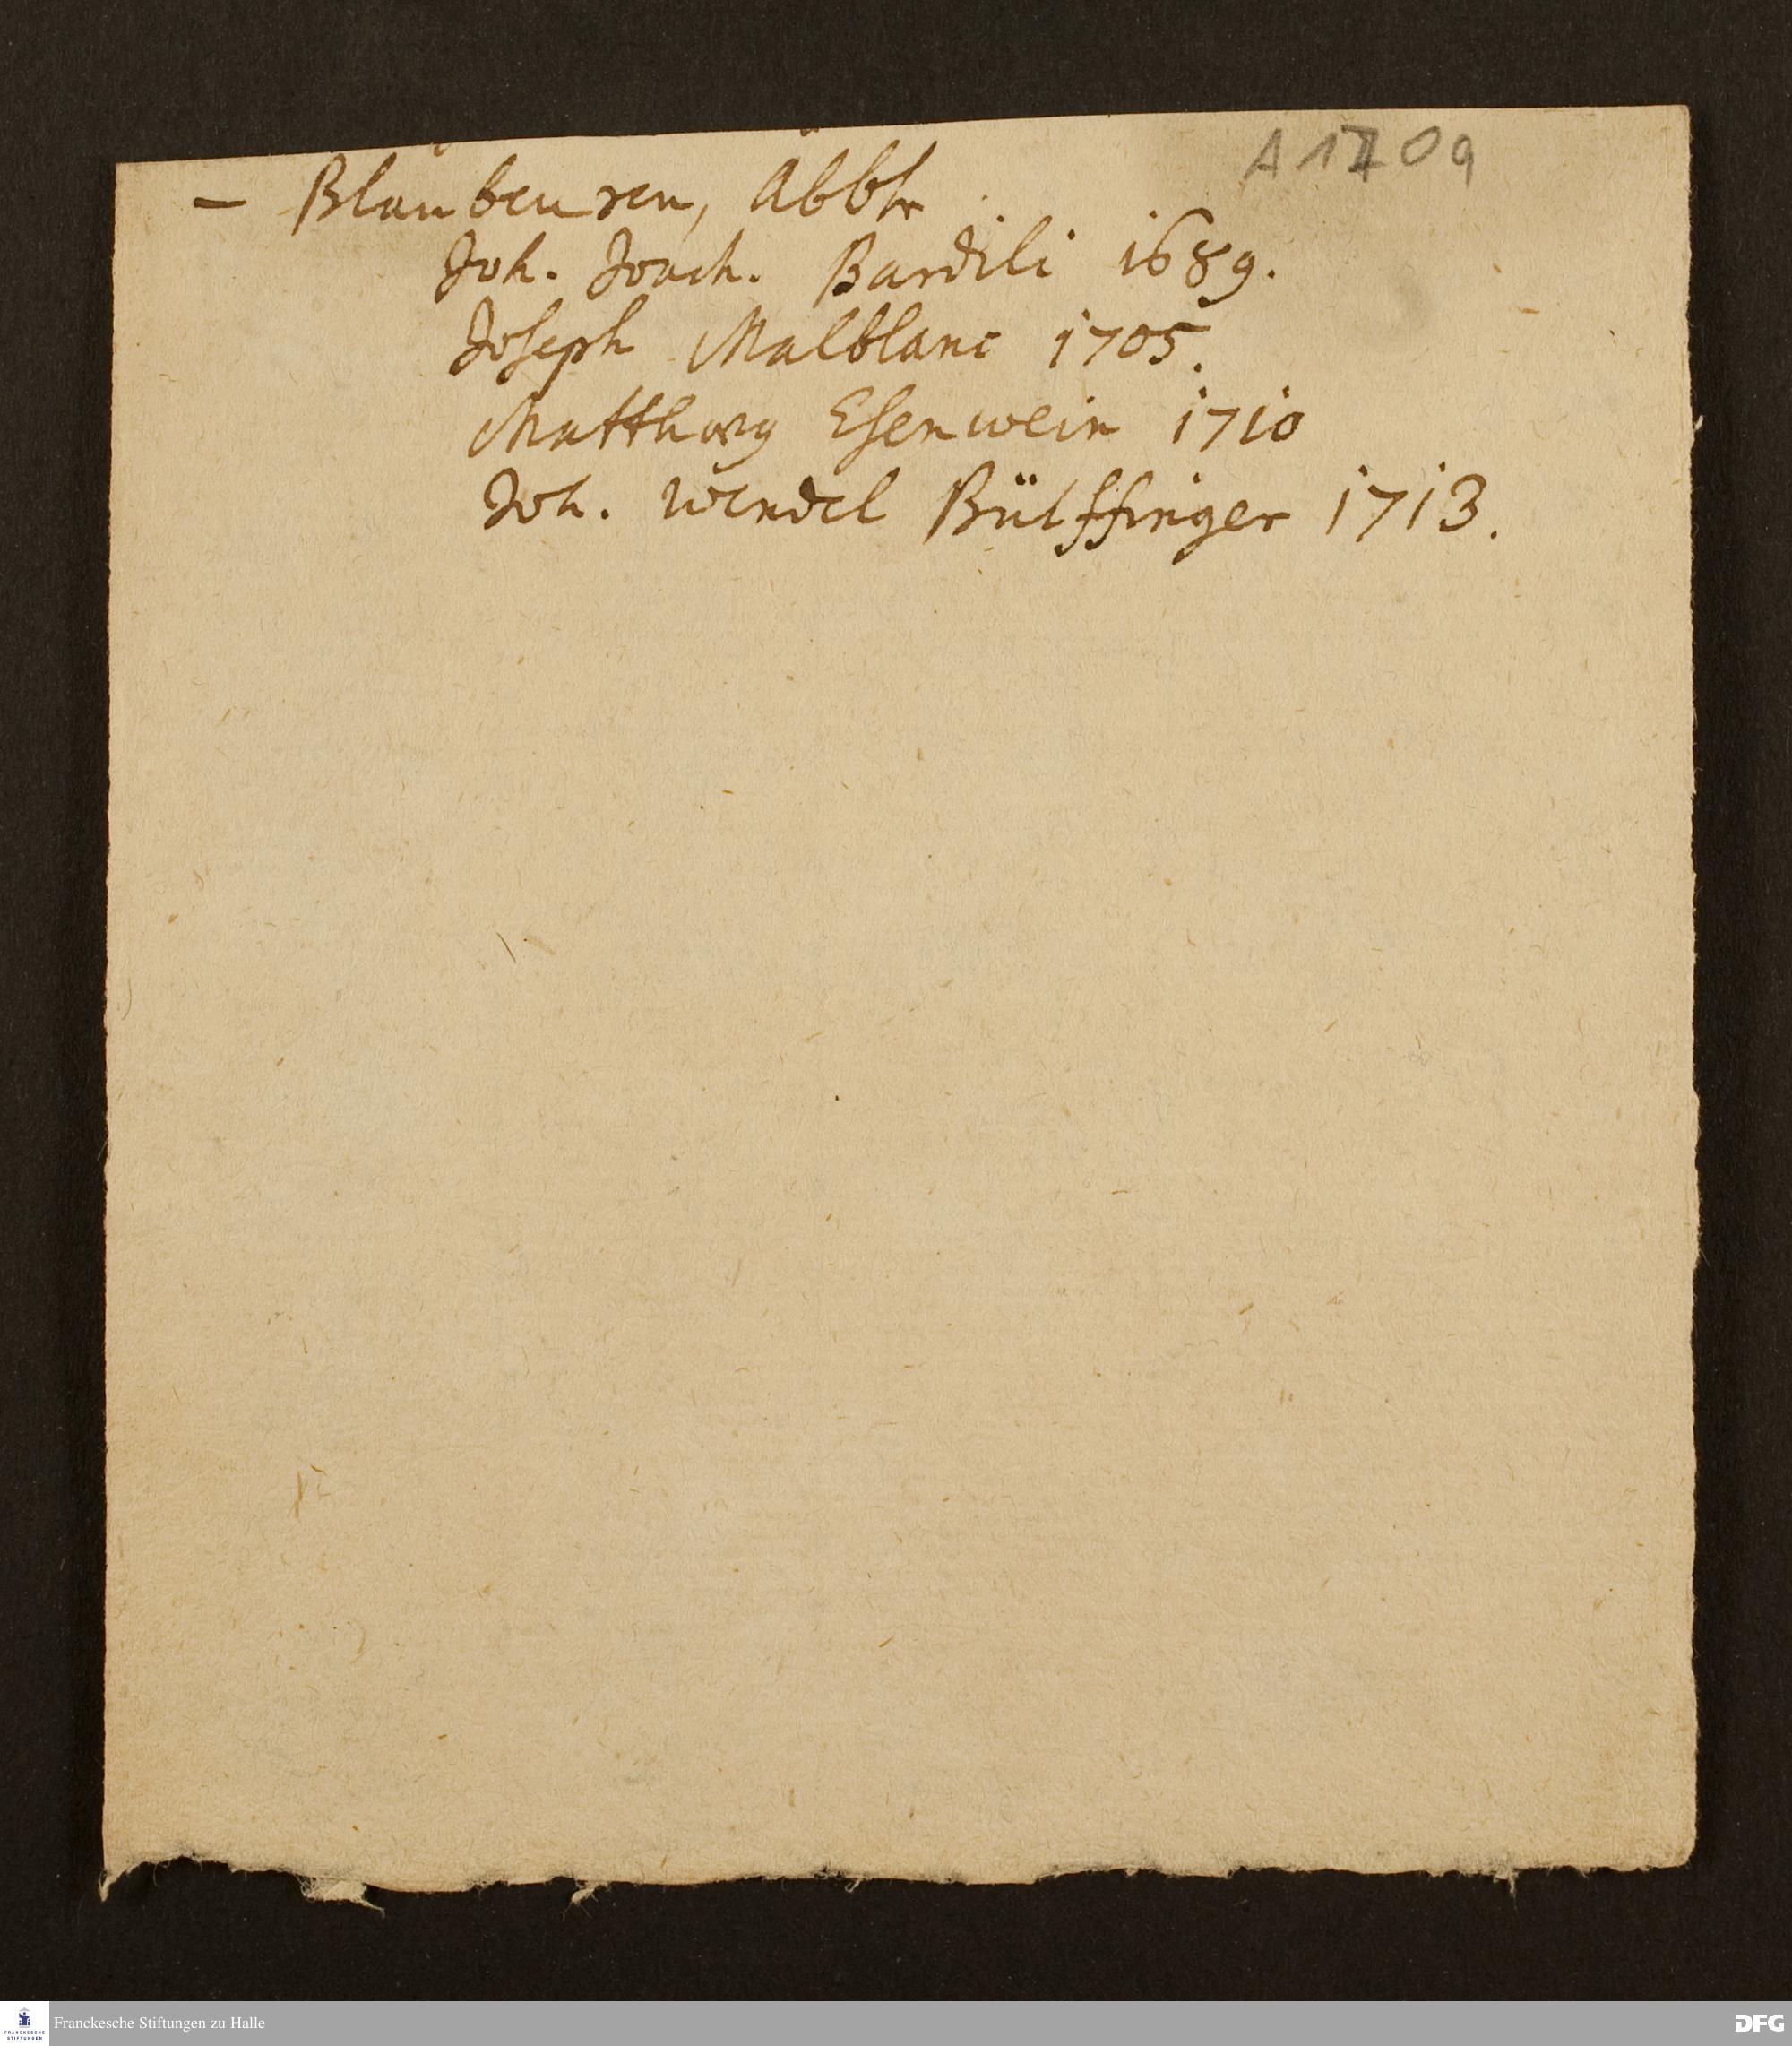 A 1709
– Blaubeuren, Abbt
Joh. Joach. Bardili 1689.
Joseph Malblanc 1705.
Matthæg Esenwein 1710
Joh. Wendel Bülffinger 1713.
Franckesche Stiftungen zu Halle
FRANCKESCHE
STIFTUNGEN
DFG